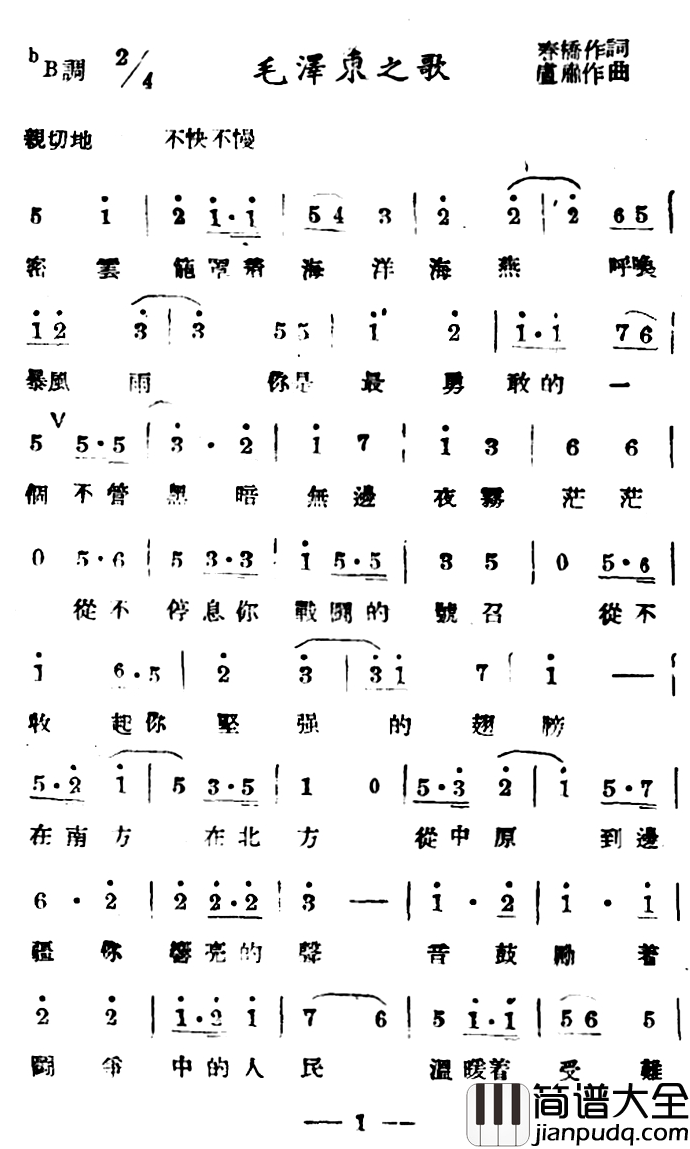 bB調 2/4 毛澤東之歌 春橋作詞
盧肅作曲
親切地 不快不慢
5 i | 2 i·i | 54 3 | 2 2 | 2 65 |
密雲籠罩着海洋海燕 呼喚
i2 3 | 3 55 | i 2 | i·i 76 |
暴風雨 你是最勇敢的一
V
5 5·5 | 3·2 | i 7 | i 3 | 6 6 |
個不管黑暗無邊夜霧茫茫
0 5·6 | 5 3·3 | i 5·5 | 3 5 | 0 5·6 |
從不停息你戰鬪的號召 從不
i 6·5 | 2 3 | 3i 7 | i — |
收起你堅强的翅膀
5·2 i | 5 3·5 | 1 0 | 5·3 2 | i 5·7 |
在南方在北方 從中原到邊
6·2 | 2 2·2 | 3 — | i·2 | i·i |
疆你響亮的聲音鼓勵着
2 2 | i·2 i | 7 6 | 5 i·i | 56 5 |
鬪爭中的人民 溫暖着受難
— 1 —
简谱大全
jianpudq.com